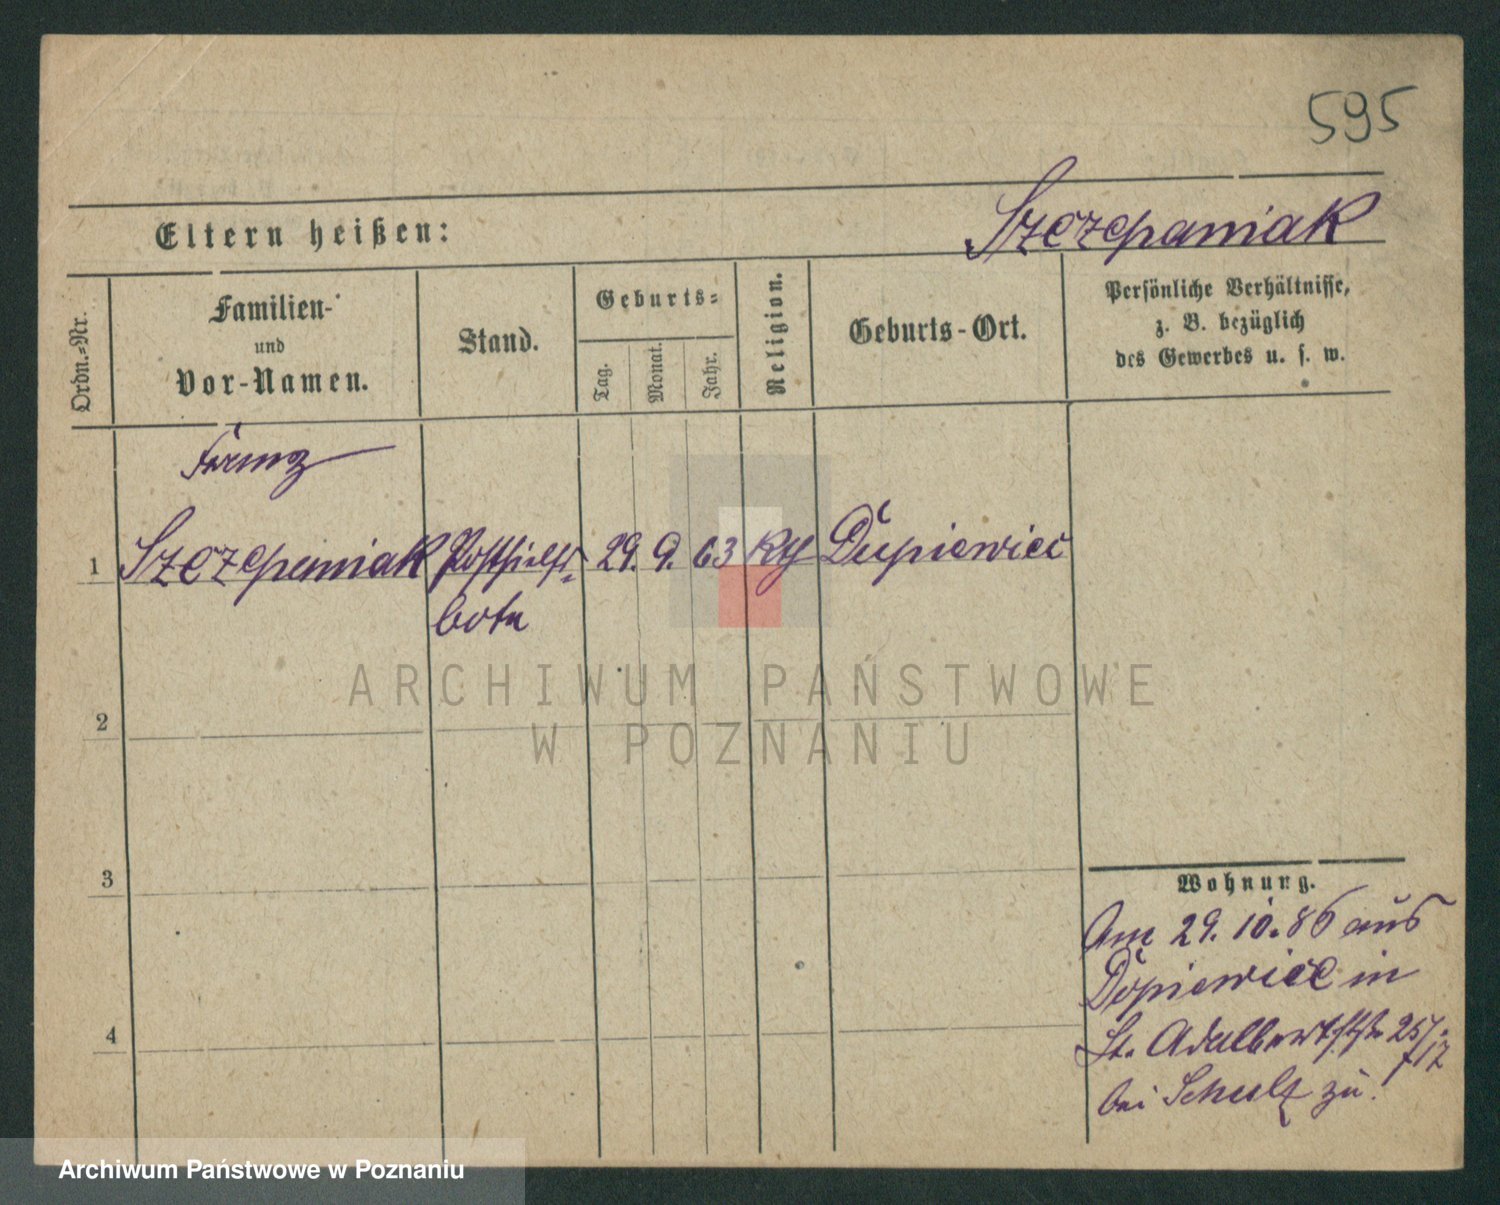 595
Eltern heißen:
Szczepaniak
Ordn.-Nr.
Familien-
und
Vor-Namen.
Stand.
Geburts-
Tag.
Monat.
Jahr.
Religion.
Geburts-Ort.
Persönliche Verhältnisse,
z. B. bezüglich
des Gewerbes u. s. w.
Franz
1 Szczepaniak Posthilfs- 29. 9. 63 Kth Dupiewiec
bote
2
3
4
Wohnung.
Am 29. 10. 86 aus
Dopiewiec in
St. Adalbertstr.
bei Schulz zu.
ARCHIWUM PAŃSTWOWE
W POZNANIU
Archiwum Państwowe w Poznaniu